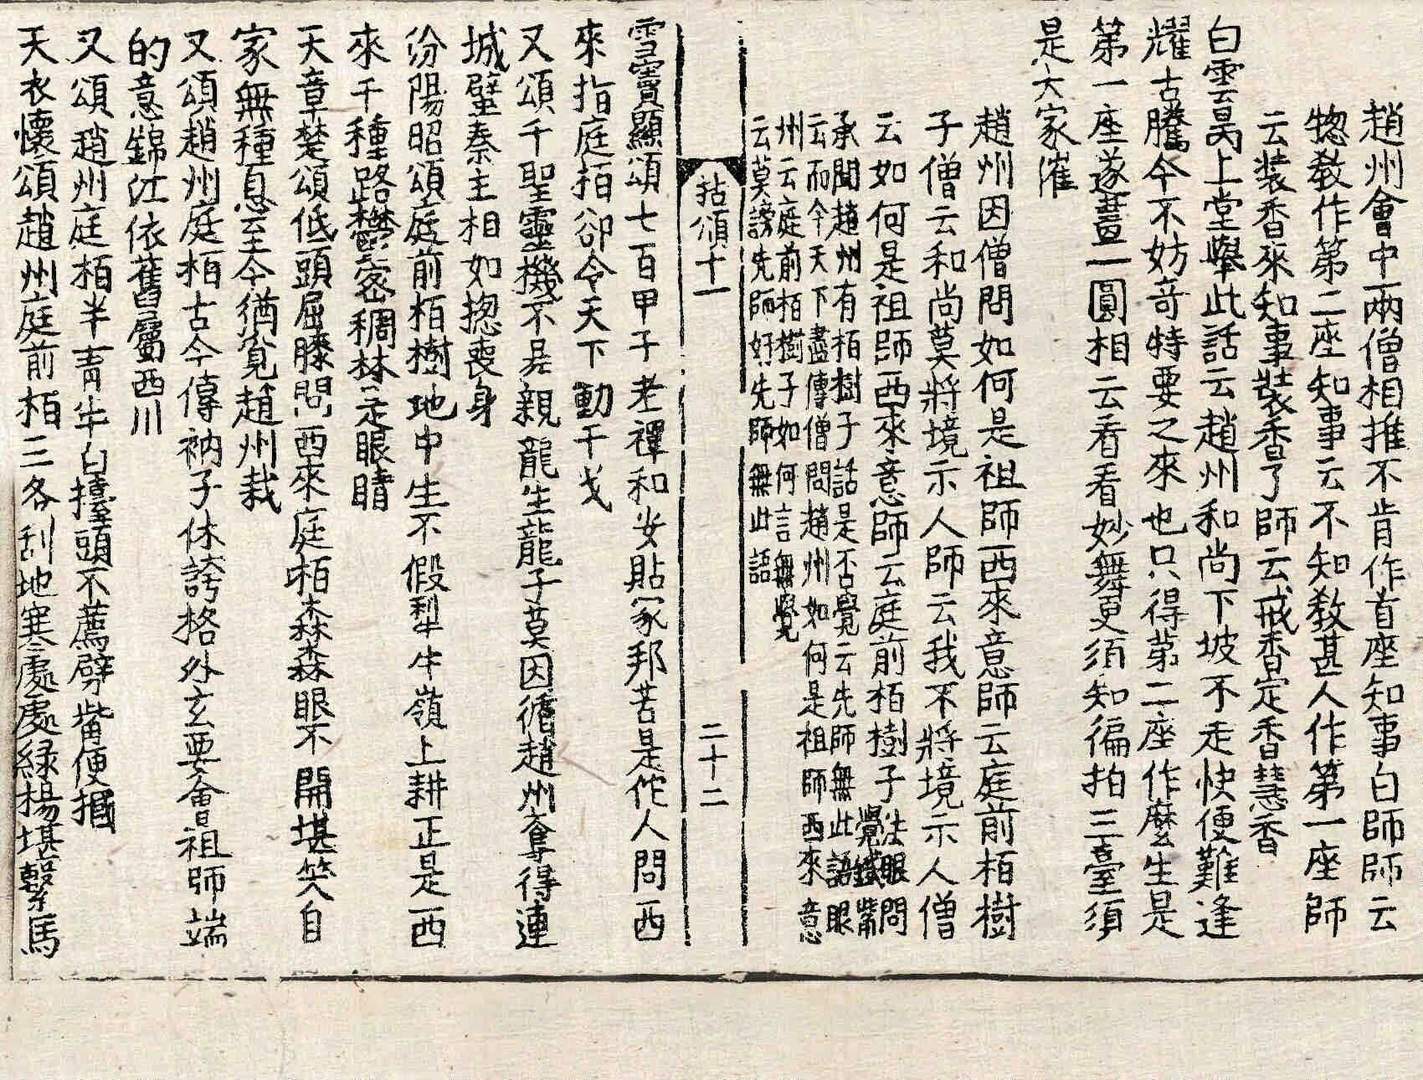 趙州會中兩僧相推不肯作首座知事白師師云
惣教作第二座知事云不知教甚人作第一座師
云裝香來知事裝香了師云戒香定香慧香
白雲昺上堂舉此話云趙州和尚下坡不走快便難逢
耀古騰今不妨奇特要之來也只得第二座作麽生是
第一座遂畫一圓相云看看妙舞更須知徧拍三臺須
是大家催
趙州因僧問如何是祖師西來意師云庭前栢樹
子僧云和尚莫將境示人師云我不將境示人僧
云如何是祖師西來意師云庭前栢樹子法眼問
覺鐵觜
承聞趙州有栢樹子話是否覺云先師無此語眼
云而今天下盡傳僧問趙州如何是祖師西來意
州云庭前栢樹子如何言無覺
云莫謗先師好先師無此語
拈頌十一
二十二
雪竇顯頌七百甲子老禪和安貼家邦苦是佗人問西
來指庭栢卻令天下動干戈
又頌千聖靈機不易親龍生龍子莫因循趙州奪得連
城璧秦主相如揔喪身
汾陽昭頌庭前栢樹地中生不假犁牛嶺上耕正是西
來千種路鬱密稠林是眼睛
天章楚頌低頭屈膝問西來庭栢森森眼不開堪笑自
家無種息至今猶覓趙州栽
又頌趙州庭栢古今傳衲子休誇格外玄要會祖師端
的意錦江依舊屬西川
又頌趙州庭栢半青半白擡頭不薦劈觜便摑
天衣懷頌趙州庭前栢三冬刮地寒處處綠楊堪繫馬